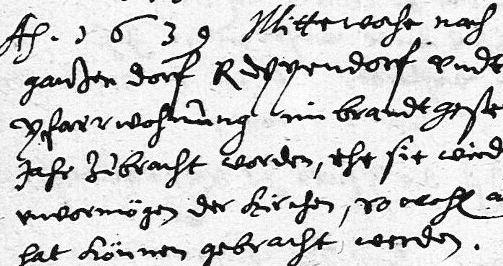 Ao. 1639 Mittwoche nach
gantzen dorf undt
Pfarrwohnung im brandt geste
Jahr zubracht worden, ehe sie wied
unvermögen der Kirchen, so wohl a
hat können gebracht werden.